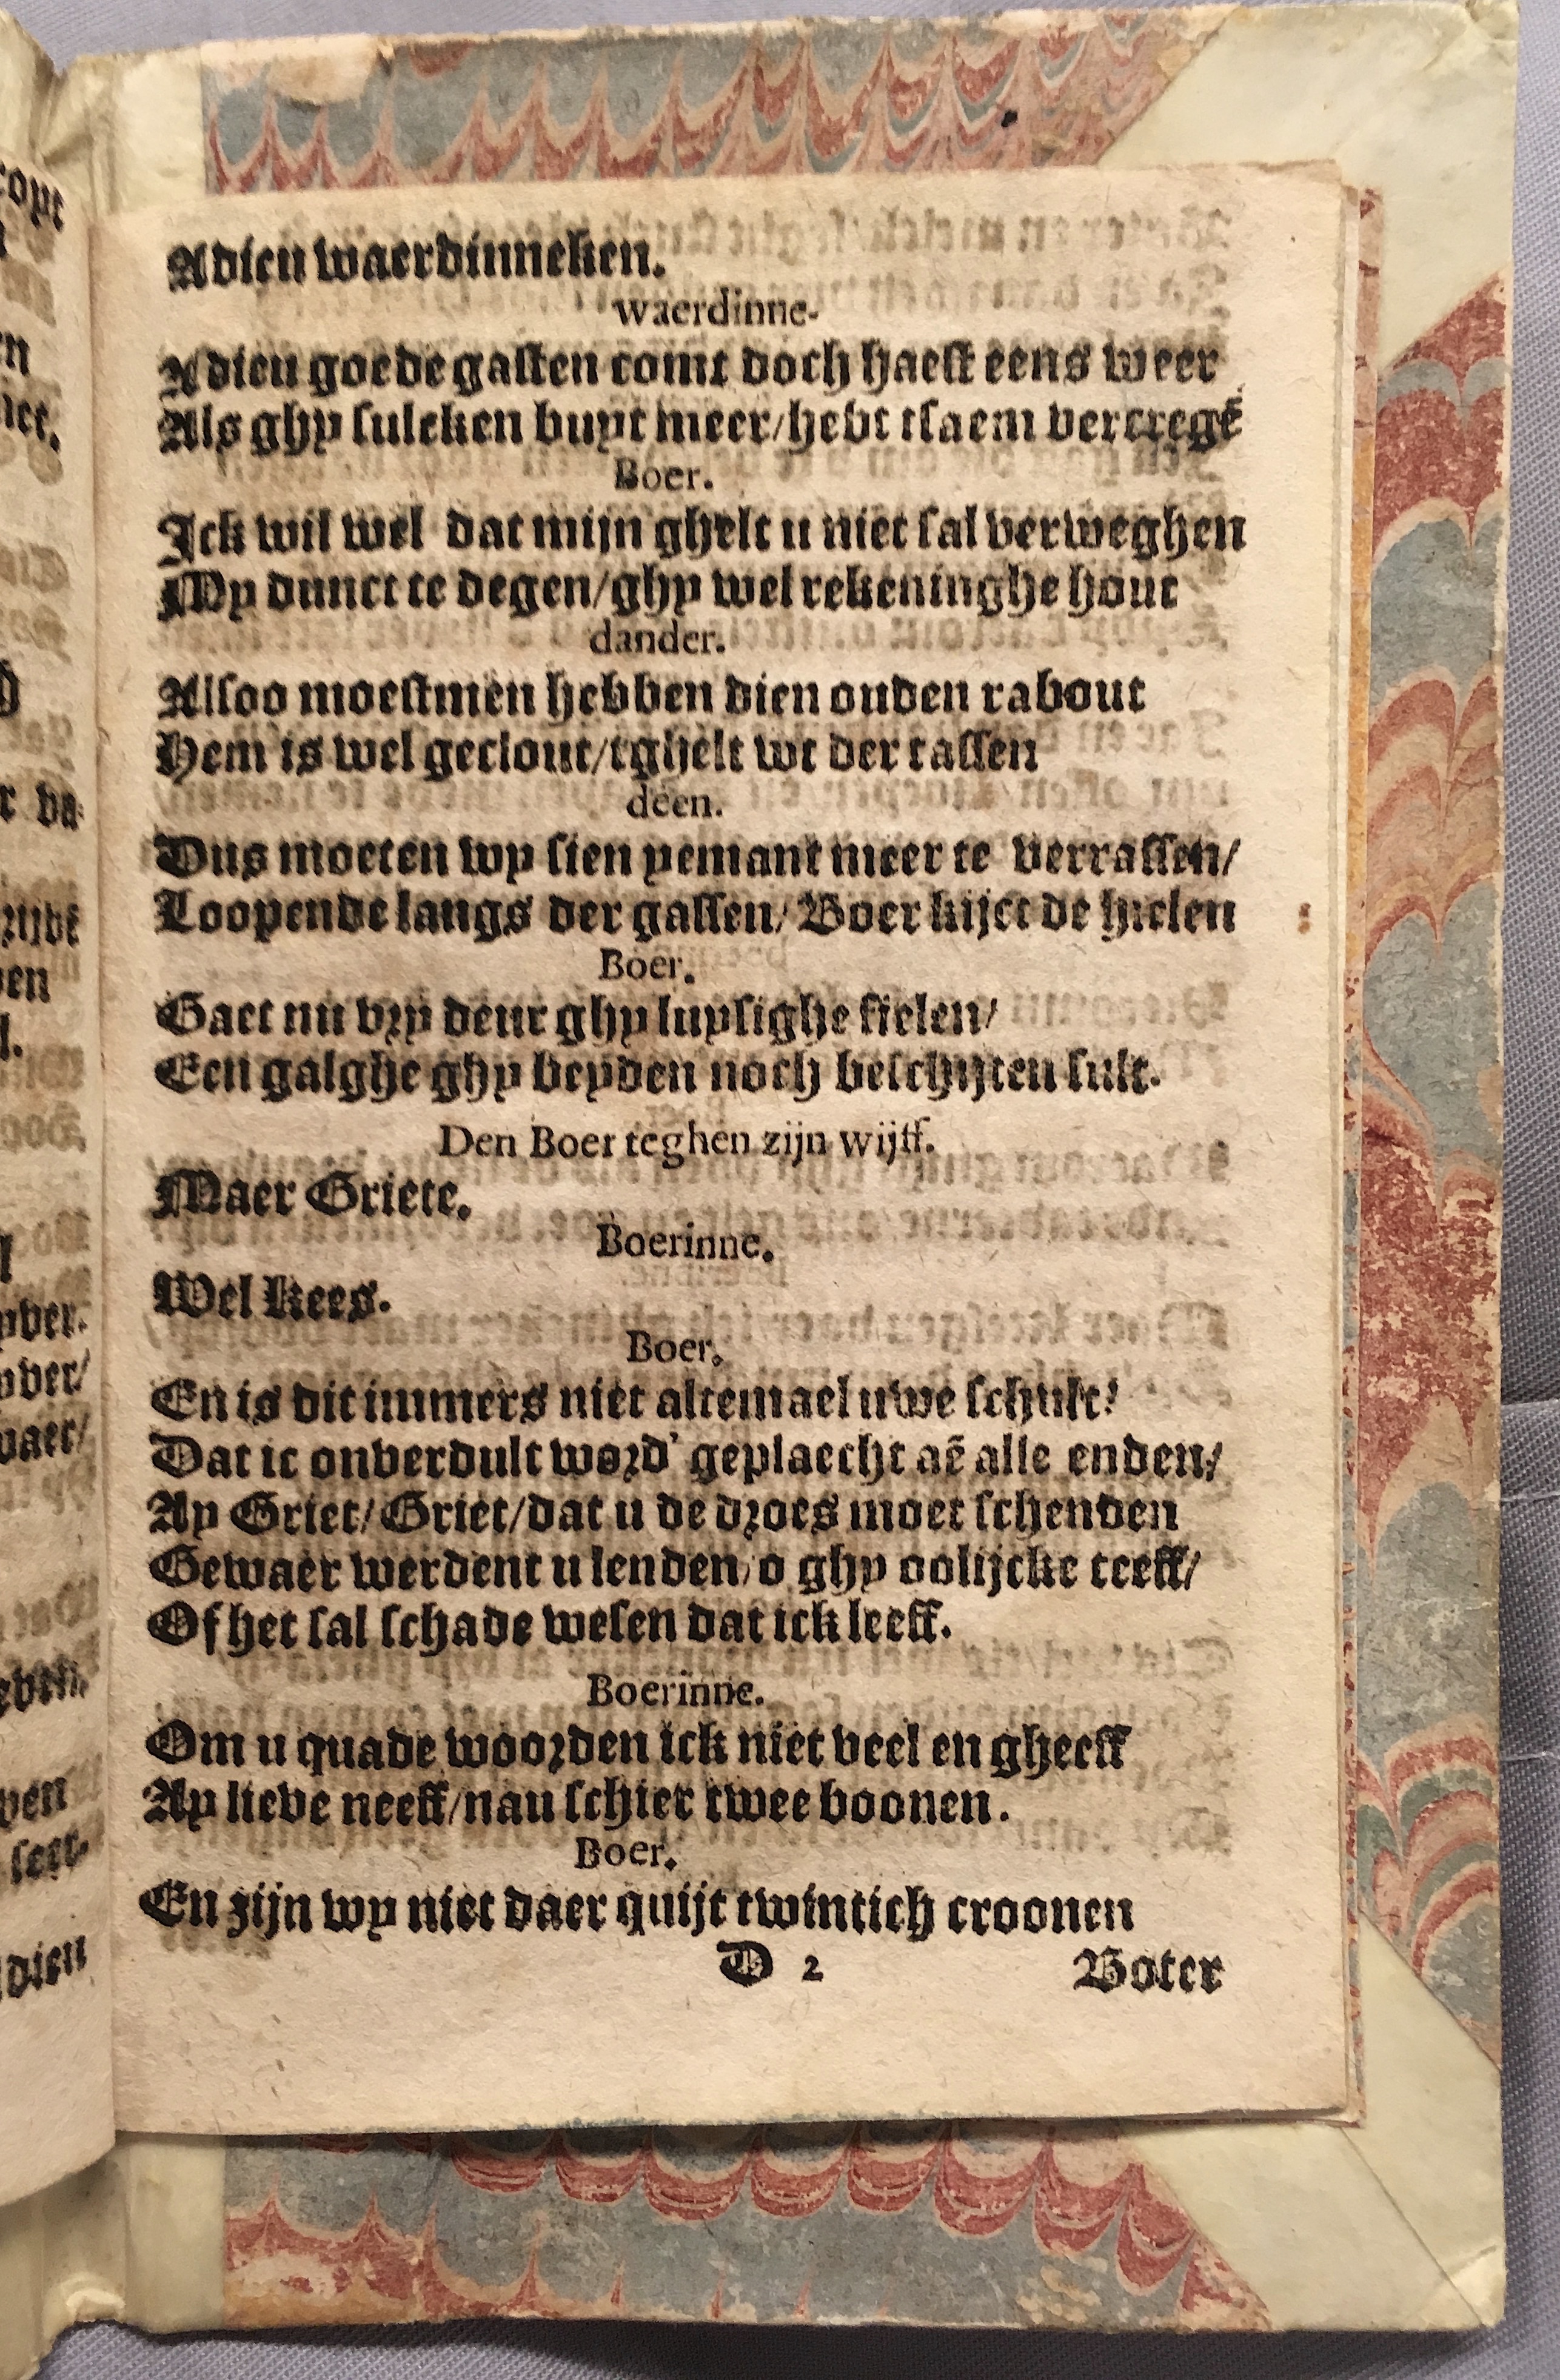 Adieu waerdinneken.
waerdinne-
Adieu goede gasten comt doch haest eens weer
Als ghy sulcken buyt meer/hebt tsaem vercregẽ
Boer.
Ick wil wel dat mijn ghelt u niet sal verweghen
My dunct te degen/ghy wel rekeninghe hout
dander.
Alsoo moestmen hebben dien ouden rabout
Hem is wel geclout/tghelt wt der tassen
deen.
Dus moeten wy sien yemant meer te verrassen/
Loopende langs der gassen/Boer kijct de hielen
Boer.
Gaet nu vry deur ghy luysighe fielen/
Een galghe ghy beyden noch beschijten sult.
Den Boer teghen zijn wijff.
Maer Griete.
Boerinne.
Wel kees.
Boer.
En is dit immers niet altemael uwe schult!
Dat ic onverdult word' geplaecht aẽ alle enden/
Ay Griet/Griet/dat u de droes moet schenden
Gewaer werdent u lenden/o ghy oolijcke teeff/
Of het sal schade wesen dat ick leeff.
Boerinne.
Om u quade woorden ick niet veel en gheeff
Ay lieve neeff/nau schier twee boonen.
Boer.
En zijn wy niet daer quijt twintich croonen
D 2 Boter